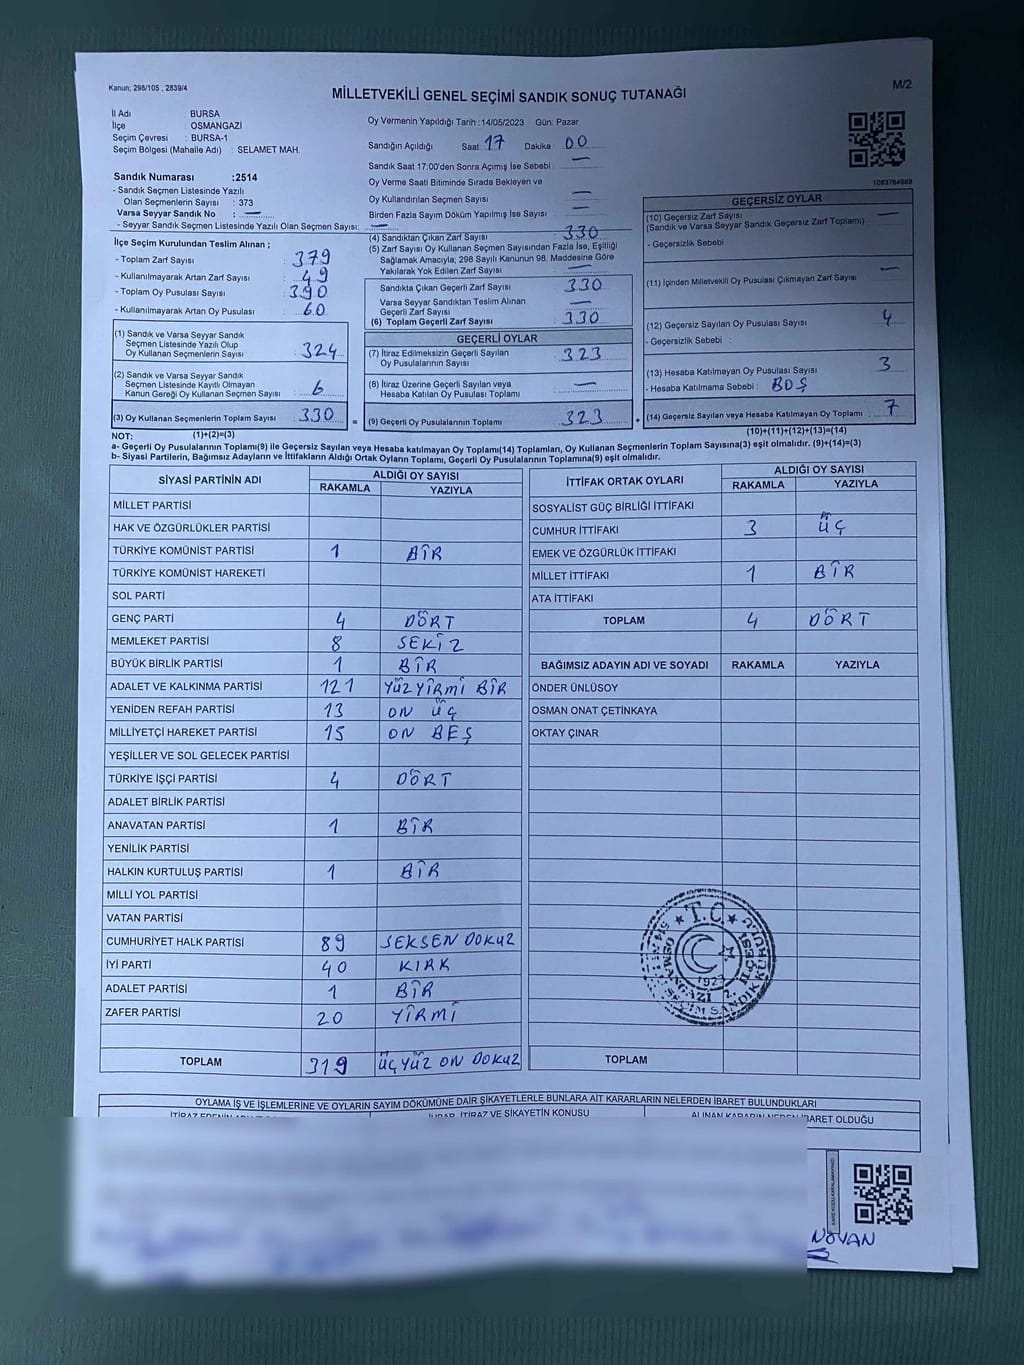 Kanun; 298/105 , 2839/4
M/2
MİLLETVEKİLİ GENEL SEÇİMİ SANDIK SONUÇ TUTANAĞI
İl Adı : BURSA
İlçe OSMANGAZİ
Seçim Çevresi : BURSA-1
Seçim Bölgesi (Mahalle Adı) : SELAMET MAH.
Sandık Numarası :2514
- Sandık Seçmen Listesinde Yazılı
Olan Seçmenlerin Sayısı : 373
Varsa Seyyar Sandık No : —
- Seyyar Sandık Seçmen Listesinde Yazılı Olan Seçmen Sayısı: —
İlçe Seçim Kurulundan Teslim Alınan ;
- Toplam Zarf Sayısı : 379
- Kullanılmayarak Artan Zarf Sayısı : 49
- Toplam Oy Pusulası Sayısı : 390
- Kullanılmayarak Artan Oy Pusulası : 60
(1) Sandık ve Varsa Seyyar Sandık
Seçmen Listesinde Yazılı Olup
Oy Kullanan Seçmenlerin Sayısı : 324
(2) Sandık ve Varsa Seyyar Sandık
Seçmen Listesinde Kayıtlı Olmayan
Kanun Gereği Oy Kullanan Seçmen Sayısı : 6
(3) Oy Kullanan Seçmenlerin Toplam Sayısı : 330
(1)+(2)=(3)
Oy Vermenin Yapıldığı Tarih :14/05/2023 Gün: Pazar
Sandığın Açıldığı Saat: 17 Dakika 00
Sandık Saat 17:00'den Sonra Açımış İse Sebebi : —
Oy Verme Saati Bitiminde Sırada Bekleyen ve
Oy Kullandırılan Seçmen Sayısı : —
Birden Fazla Sayım Döküm Yapılmış İse Sayısı : —
(4) Sandıktan Çıkan Zarf Sayısı : 330
(5) Zarf Sayısı Oy Kullanan Seçmen Sayısından Fazla İse, Eşitliği
Sağlamak Amacıyla; 298 Sayılı Kanunun 98. Maddesine Göre
Yakılarak Yok Edilen Zarf Sayısı : —
Sandıkta Çıkan Geçerli Zarf Sayısı : 330
Varsa Seyyar Sandıktan Teslim Alınan
Geçerli Zarf Sayısı : —
(6) Toplam Geçerli Zarf Sayısı : 330
GEÇERLİ OYLAR
(7) İtiraz Edilmeksizin Geçerli Sayılan
Oy Pusulalarının Sayısı : 323
(8) İtiraz Üzerine Geçerli Sayılan veya
Hesaba Katılan Oy Pusulası Toplamı : —
= (9) Geçerli Oy Pusulalarının Toplamı : 323 +
1083764668
GEÇERSİZ OYLAR
(10) Geçersiz Zarf Sayısı : —
(Sandık ve Varsa Seyyar Sandık Geçersiz Zarf Toplamı)
- Geçersizlik Sebebi
(11) İçinden Milletvekili Oy Pusulası Çıkmayan Zarf Sayısı : —
(12) Geçersiz Sayılan Oy Pusulası Sayısı : 4
- Geçersizlik Sebebi :
(13) Hesaba Katılmayan Oy Pusulası Sayısı : 3
- Hesaba Katılmama Sebebi : BOŞ
(14) Geçersiz Sayılan veya Hesaba Katılmayan Oy Toplamı : 7
(10)+(11)+(12)+(13)=(14)
NOT:
a- Geçerli Oy Pusulalarının Toplamı(9) ile Geçersiz Sayılan veya Hesaba katılmayan Oy Toplamı(14) Toplamları, Oy Kullanan Seçmenlerin Toplam Sayısına(3) eşit olmalıdır. (9)+(14)=(3)
b- Siyasi Partilerin, Bağımsız Adayların ve İttifakların Aldığı Ortak Oyların Toplamı, Geçerli Oy Pusulalarının Toplamına(9) eşit olmalıdır.
SİYASİ PARTİNİN ADI ALDIĞI OY SAYISI
RAKAMLA YAZIYLA
MİLLET PARTİSİ
HAK VE ÖZGÜRLÜKLER PARTİSİ
TÜRKİYE KOMÜNİST PARTİSİ 1 BİR
TÜRKİYE KOMÜNİST HAREKETİ
SOL PARTİ
GENÇ PARTİ 4 DÖRT
MEMLEKET PARTİSİ 8 SEKİZ
BÜYÜK BİRLİK PARTİSİ 1 BİR
ADALET VE KALKINMA PARTİSİ 121 YÜZ YİRMİ BİR
YENİDEN REFAH PARTİSİ 13 ON ÜÇ
MİLLİYETÇİ HAREKET PARTİSİ 15 ON BEŞ
YEŞİLLER VE SOL GELECEK PARTİSİ
TÜRKİYE İŞÇİ PARTİSİ 4 DÖRT
ADALET BİRLİK PARTİSİ
ANAVATAN PARTİSİ 1 BİR
YENİLİK PARTİSİ
HALKIN KURTULUŞ PARTİSİ 1 BİR
MİLLİ YOL PARTİSİ
VATAN PARTİSİ
CUMHURİYET HALK PARTİSİ 89 SEKSEN DOKUZ
İYİ PARTİ 40 KIRK
ADALET PARTİSİ 1 BİR
ZAFER PARTİSİ 20 YİRMİ
TOPLAM 319 ÜÇ YÜZ ON DOKUZ
İTTİFAK ORTAK OYLARI ALDIĞI OY SAYISI
RAKAMLA YAZIYLA
SOSYALİST GÜÇ BİRLİĞİ İTTİFAKI
CUMHUR İTTİFAKI 3 ÜÇ
EMEK VE ÖZGÜRLÜK İTTİFAKI
MİLLET İTTİFAKI 1 BİR
ATA İTTİFAKI
TOPLAM 4 DÖRT
BAĞIMSIZ ADAYIN ADI VE SOYADI RAKAMLA YAZIYLA
ÖNDER ÜNLÜSOY
OSMAN ONAT ÇETİNKAYA
OKTAY ÇINAR
T.C.
1923
OSMANGAZİ 2. İLÇESİ
SEÇİM SANDIK KURULU
TOPLAM
OYLAMA İŞ VE İŞLEMLERİNE VE OYLARIN SAYIM DÖKÜMÜNE DAİR ŞİKAYETLERLE BUNLARA AİT KARARLARIN NELERDEN İBARET BULUNDUKLARI
İTİRAZ VE ŞİKAYETİN KONUSU ALINAN KARARIN NEDEN İBARET OLDUĞU
NOYAN